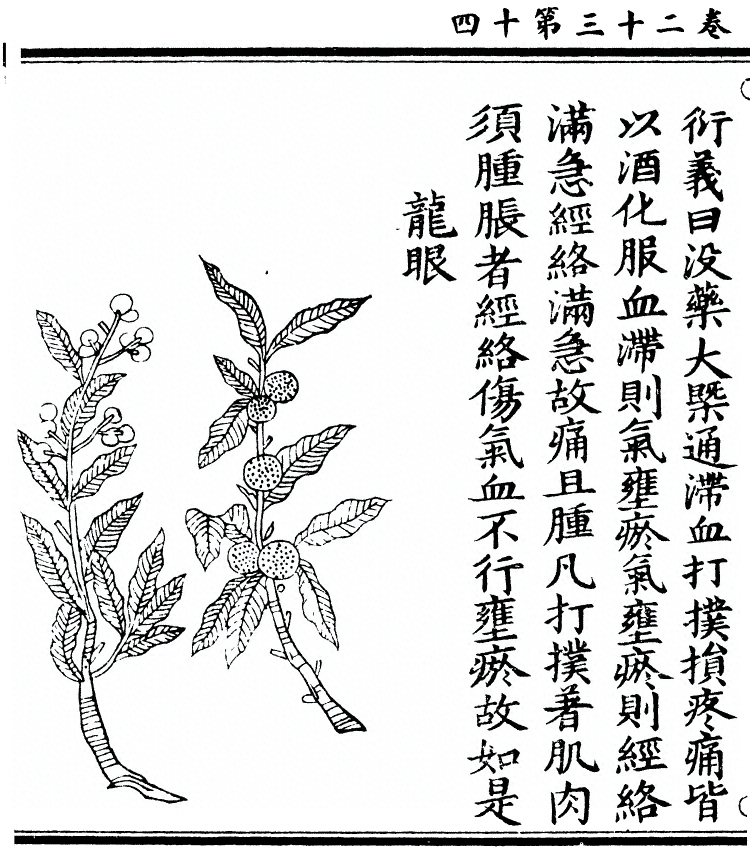 卷二十三第十四
衍義曰没藥大槩通滯血打撲損疼痛皆
以酒化服血滯則氣壅瘀氣壅瘀則經絡
滿急經絡滿急故痛且腫凡打撲著肌肉
須腫脹者經絡傷氣血不行壅瘀故如是
龍眼